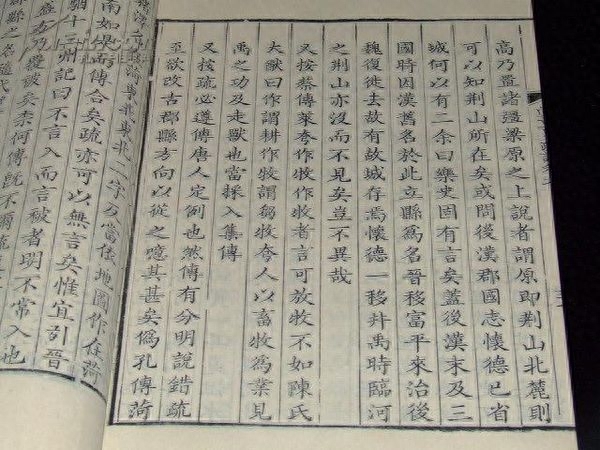 高乃置諸彊梁原之上說者謂原即荆山北麓則
可以知荆山所在矣或問後漢郡國志懷德已省
城何以有二余曰樂史固有言矣蓋後漢末及三
國時因漢舊名於此立縣爲名晉移富平來治後
魏復徙去故有故城存焉懷德一移井禹時臨河
之荆山亦沒而不見矣豈不異哉
又按蔡傳萊夷作牧作牧者言可放牧不如陳氏
大猷曰作謂耕作牧謂芻牧夷人以畜牧爲業見
禹之功及走獸也當採入集傳
又按疏必遵傳唐人定例也然傳有分明說錯疏
至欲改古郡縣方向以從之噫其甚矣僞孔傳菏
東北東北二字乃當依地圖作在菏
南如是而傳合矣疏亦可以無言矣惟宜引晉
十三州記曰不言入而言被者明不常入也
盛方乃覆被矣柰何傳旣不爾疏